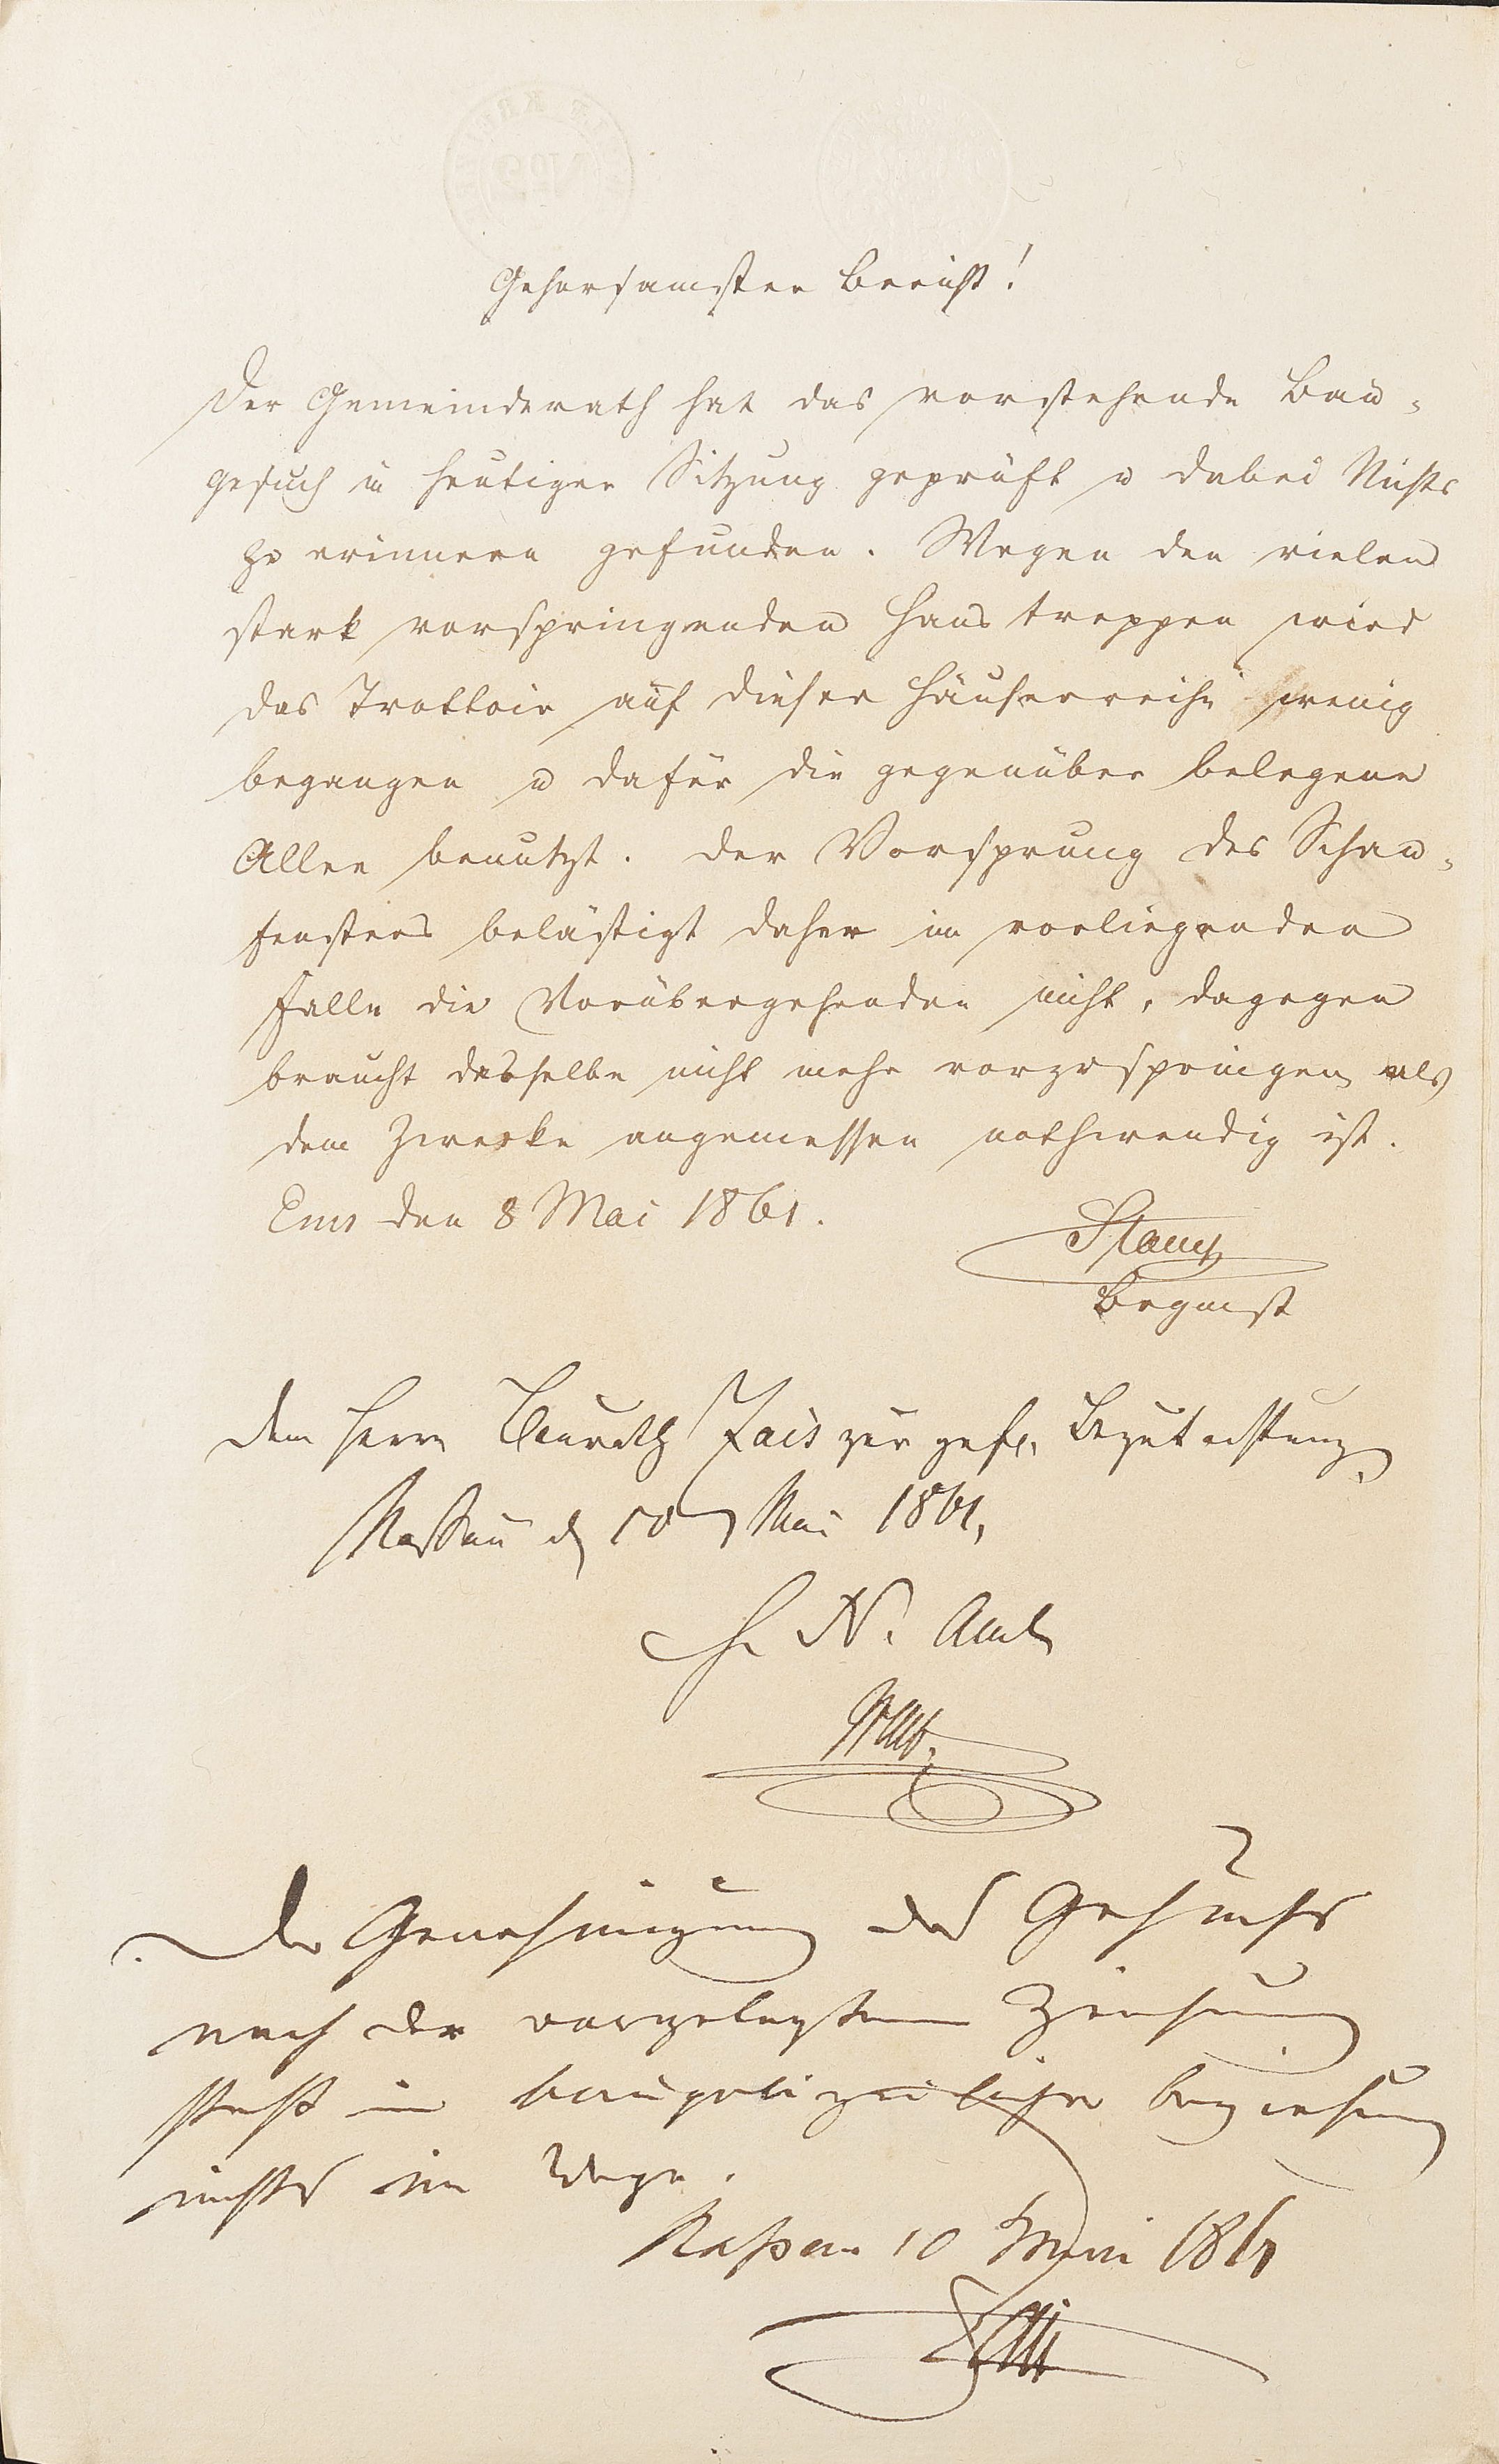 Gehorsamster Bericht!
Der Gemeinderath hat das vorstehende Bau-
gesuch in heutiger Sitzung geprüft u dabei Nichts
zu erinnern gefunden. Wegen den vielen
stark vorspringenden Haustreppen wird
das Trottoir auf dieser Häuserreihe wenig
begangen u dafür die gegenüber belegene
Allee benutzt. Der Vorsprung des Schau-
fensters belästigt daher im vorliegenden
Falle die Vorübergehenden nicht, dagegen
braucht dasselbe nicht mehr vorzuspringen als
dem Zwecke angemessen nothwendig ist.
Ems den 8 Mai 1861.
Brgmst
Dem Herrn Baurath Zais zur gefl. Begutachtung.
Nassau d 10 Mai 1861,
H. N. Amt
Der Genehmigung des Gesuchs
nach der vorgelegten Zeichnung
steht in baupolizeilicher Beziehung
nichts im Wege.
Nassau 10 Mai 1861
Zais